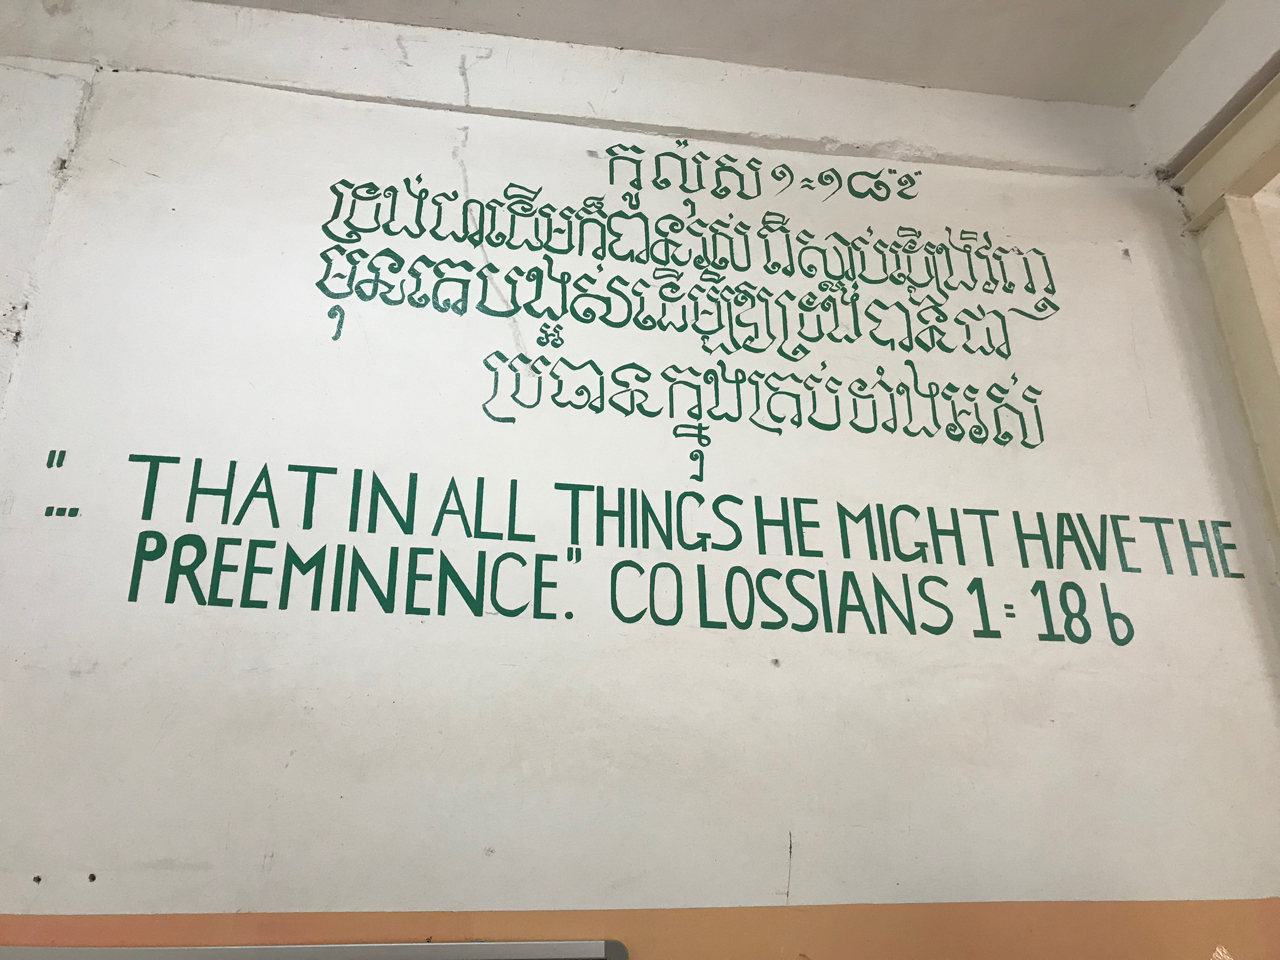 កូល៉ុស ១=១៨"ខ"
ទ្រង់ជាដើមក៏បានរស់ពីស្លាប់ឡើងវិញ
មុនគេបង្អស់ដើម្បីឲ្យទ្រង់បានជា
ប្រធានក្នុងគ្រប់ទាំងអស់
"... THAT IN ALL THINGS HE MIGHT HAVE THE
PREEMINENCE." COLOSSIANS 1=18 b